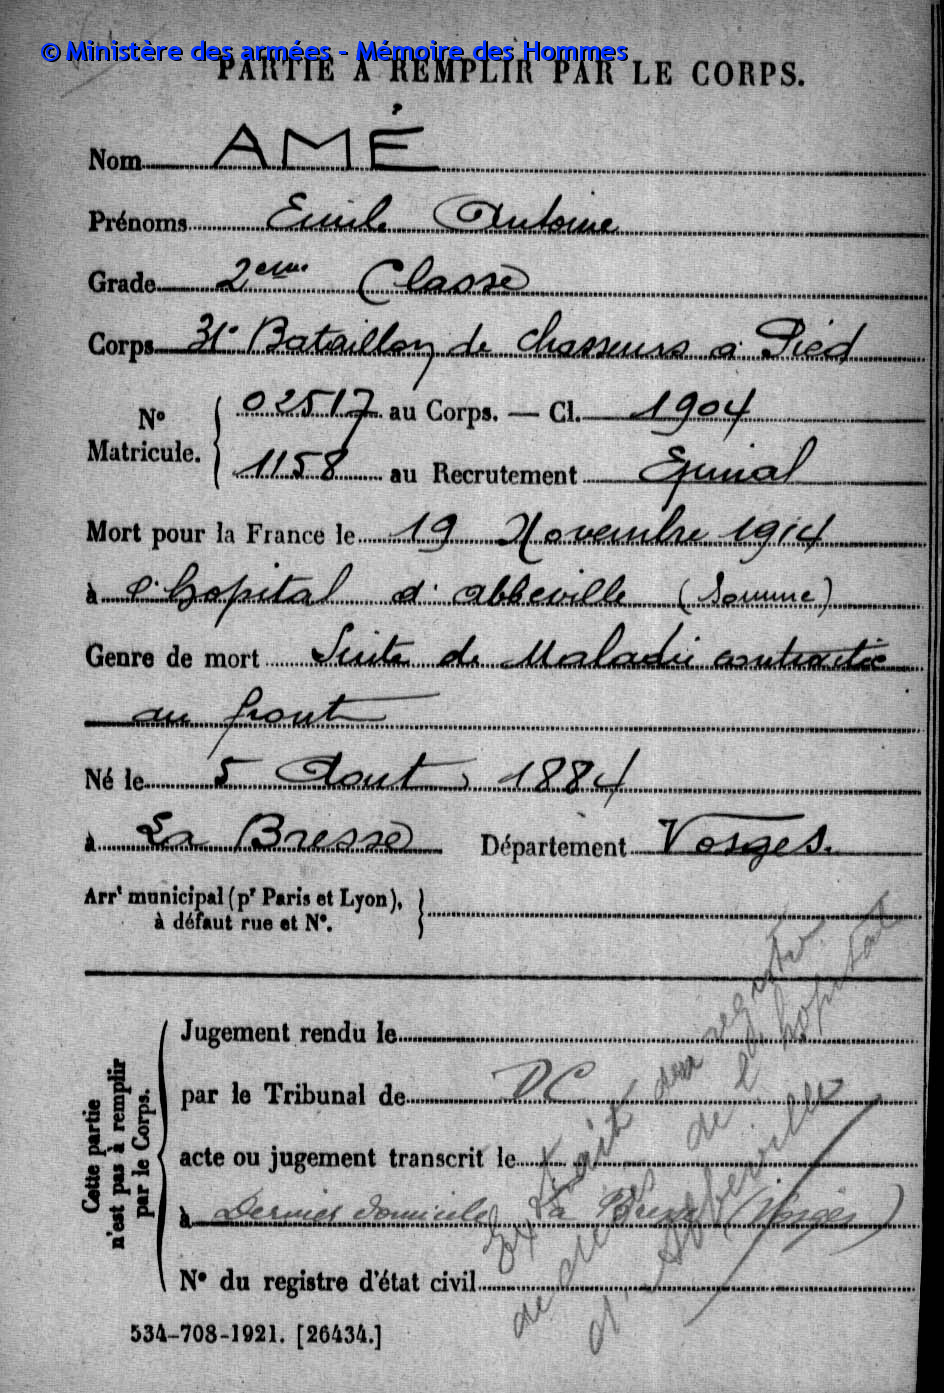 © Ministère des armées - Mémoire des Hommes
PARTIE À REMPLIR PAR LE CORPS.
Nom AMÉ
Prénoms Emile Antoine
Grade 2eme Classe
Corps 31e Bataillon de chasseurs à Pied
N° Matricule. { 02517 au Corps. — Cl. 1904
1158 au Recrutement Epinal
Mort pour la France le 19 Novembre 1914
à l'hopital d'abbeville (Somme)
Genre de mort Suite de Maladie contractée
au front
Né le 5 Aout 1884
à La Bresse Département Vosges.
Arrt municipal (pr Paris et Lyon), à défaut rue et N°. }
Cette partie n'est pas à remplir par le Corps.
Jugement rendu le
par le Tribunal de DC
acte ou jugement transcrit le
à Dernier domicile La Bresse (Vosges)
N° du registre d'état civil
Extrait du registre
de décès de l'hopital
d'Abbeville
534-708-1921. [26434.]